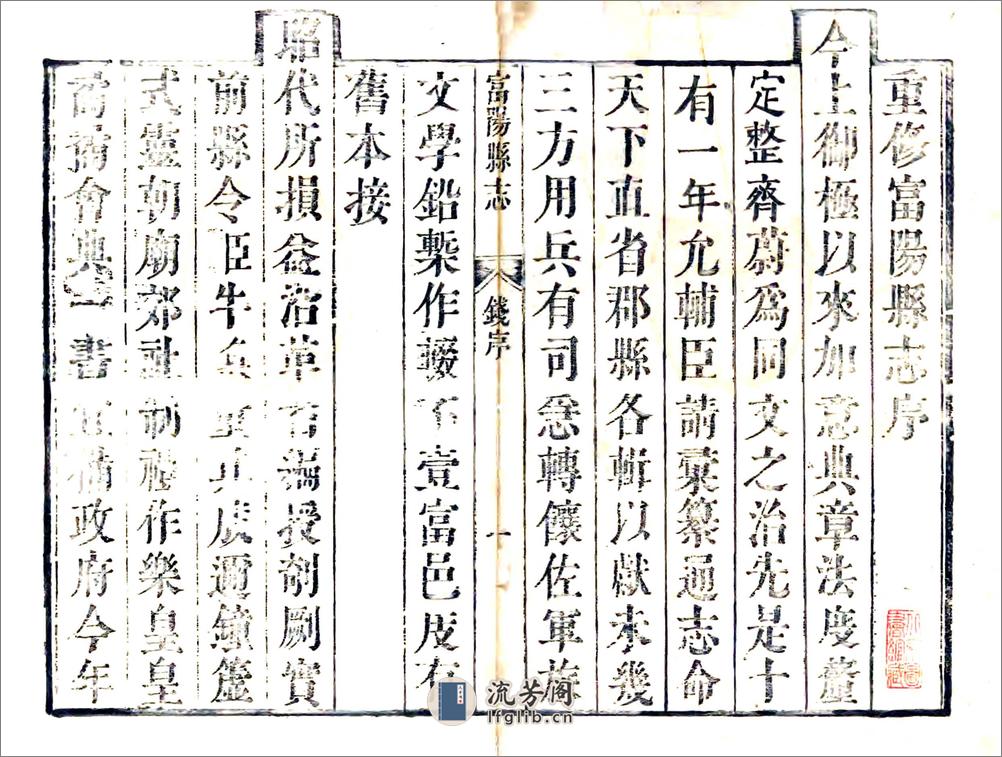 重修富陽縣志序
今上御極以來加意典章法度釐
定整齊蔚為同文之治先是十
有一年允輔臣請彙纂通志命
天下直省郡縣各輯以獻未幾
三方用兵有司悉轉饟佐軍旅
富陽縣志 錢序 一
文學鉛槧作輟不壹富邑庋有
舊本接
昭代所損益沿革 授剞劂實
前縣令臣牛奐 邇鐘簴
式靈朝廟郊社制禮作樂皇皇
會典一書 政府今年
流芳阁
lfglib.cn